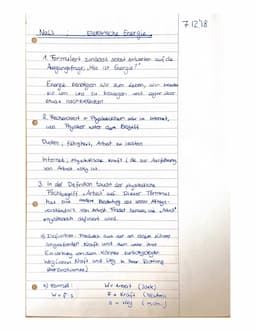 7.12.18
NaWi Elektrische Energie
1. Formuliert zunächst selbst Antworten auf die
Ausgangsfrage „Was ist Energie?"
Energie benötigen wir zum Leben, wir
sie um uns zu bewegen und
etwas
2. Recherchiert
was Physiker unter dem Begriff
Duden: Fähigkeit, Arbeit zu leisten
Internet: physikalische Kraft, die zur Ausführung
von Arbeit nötig ist.
3. In der Definition taucht der physikalische
Fachbegriff „Arbeit" auf. Dieser Terminus
hat eine andere Bedeutung als unser Alltags-
verständnis von Arbeit. Findet heraus, wie „Arbeit"
physikalisch definiert wird.
a) Definition: Produkt aus der an einem Körper
angreifenden Kraft und dem unter ihrer
Einwirkung von dem Körper zurückgelegten
Weg (wenn Kraft und Weg in ihrer Richtung
übereinstimmen)
b) Formel: W = Arbeit (Joule)
W = F · s F = Kraft (Newton)
s = Weg